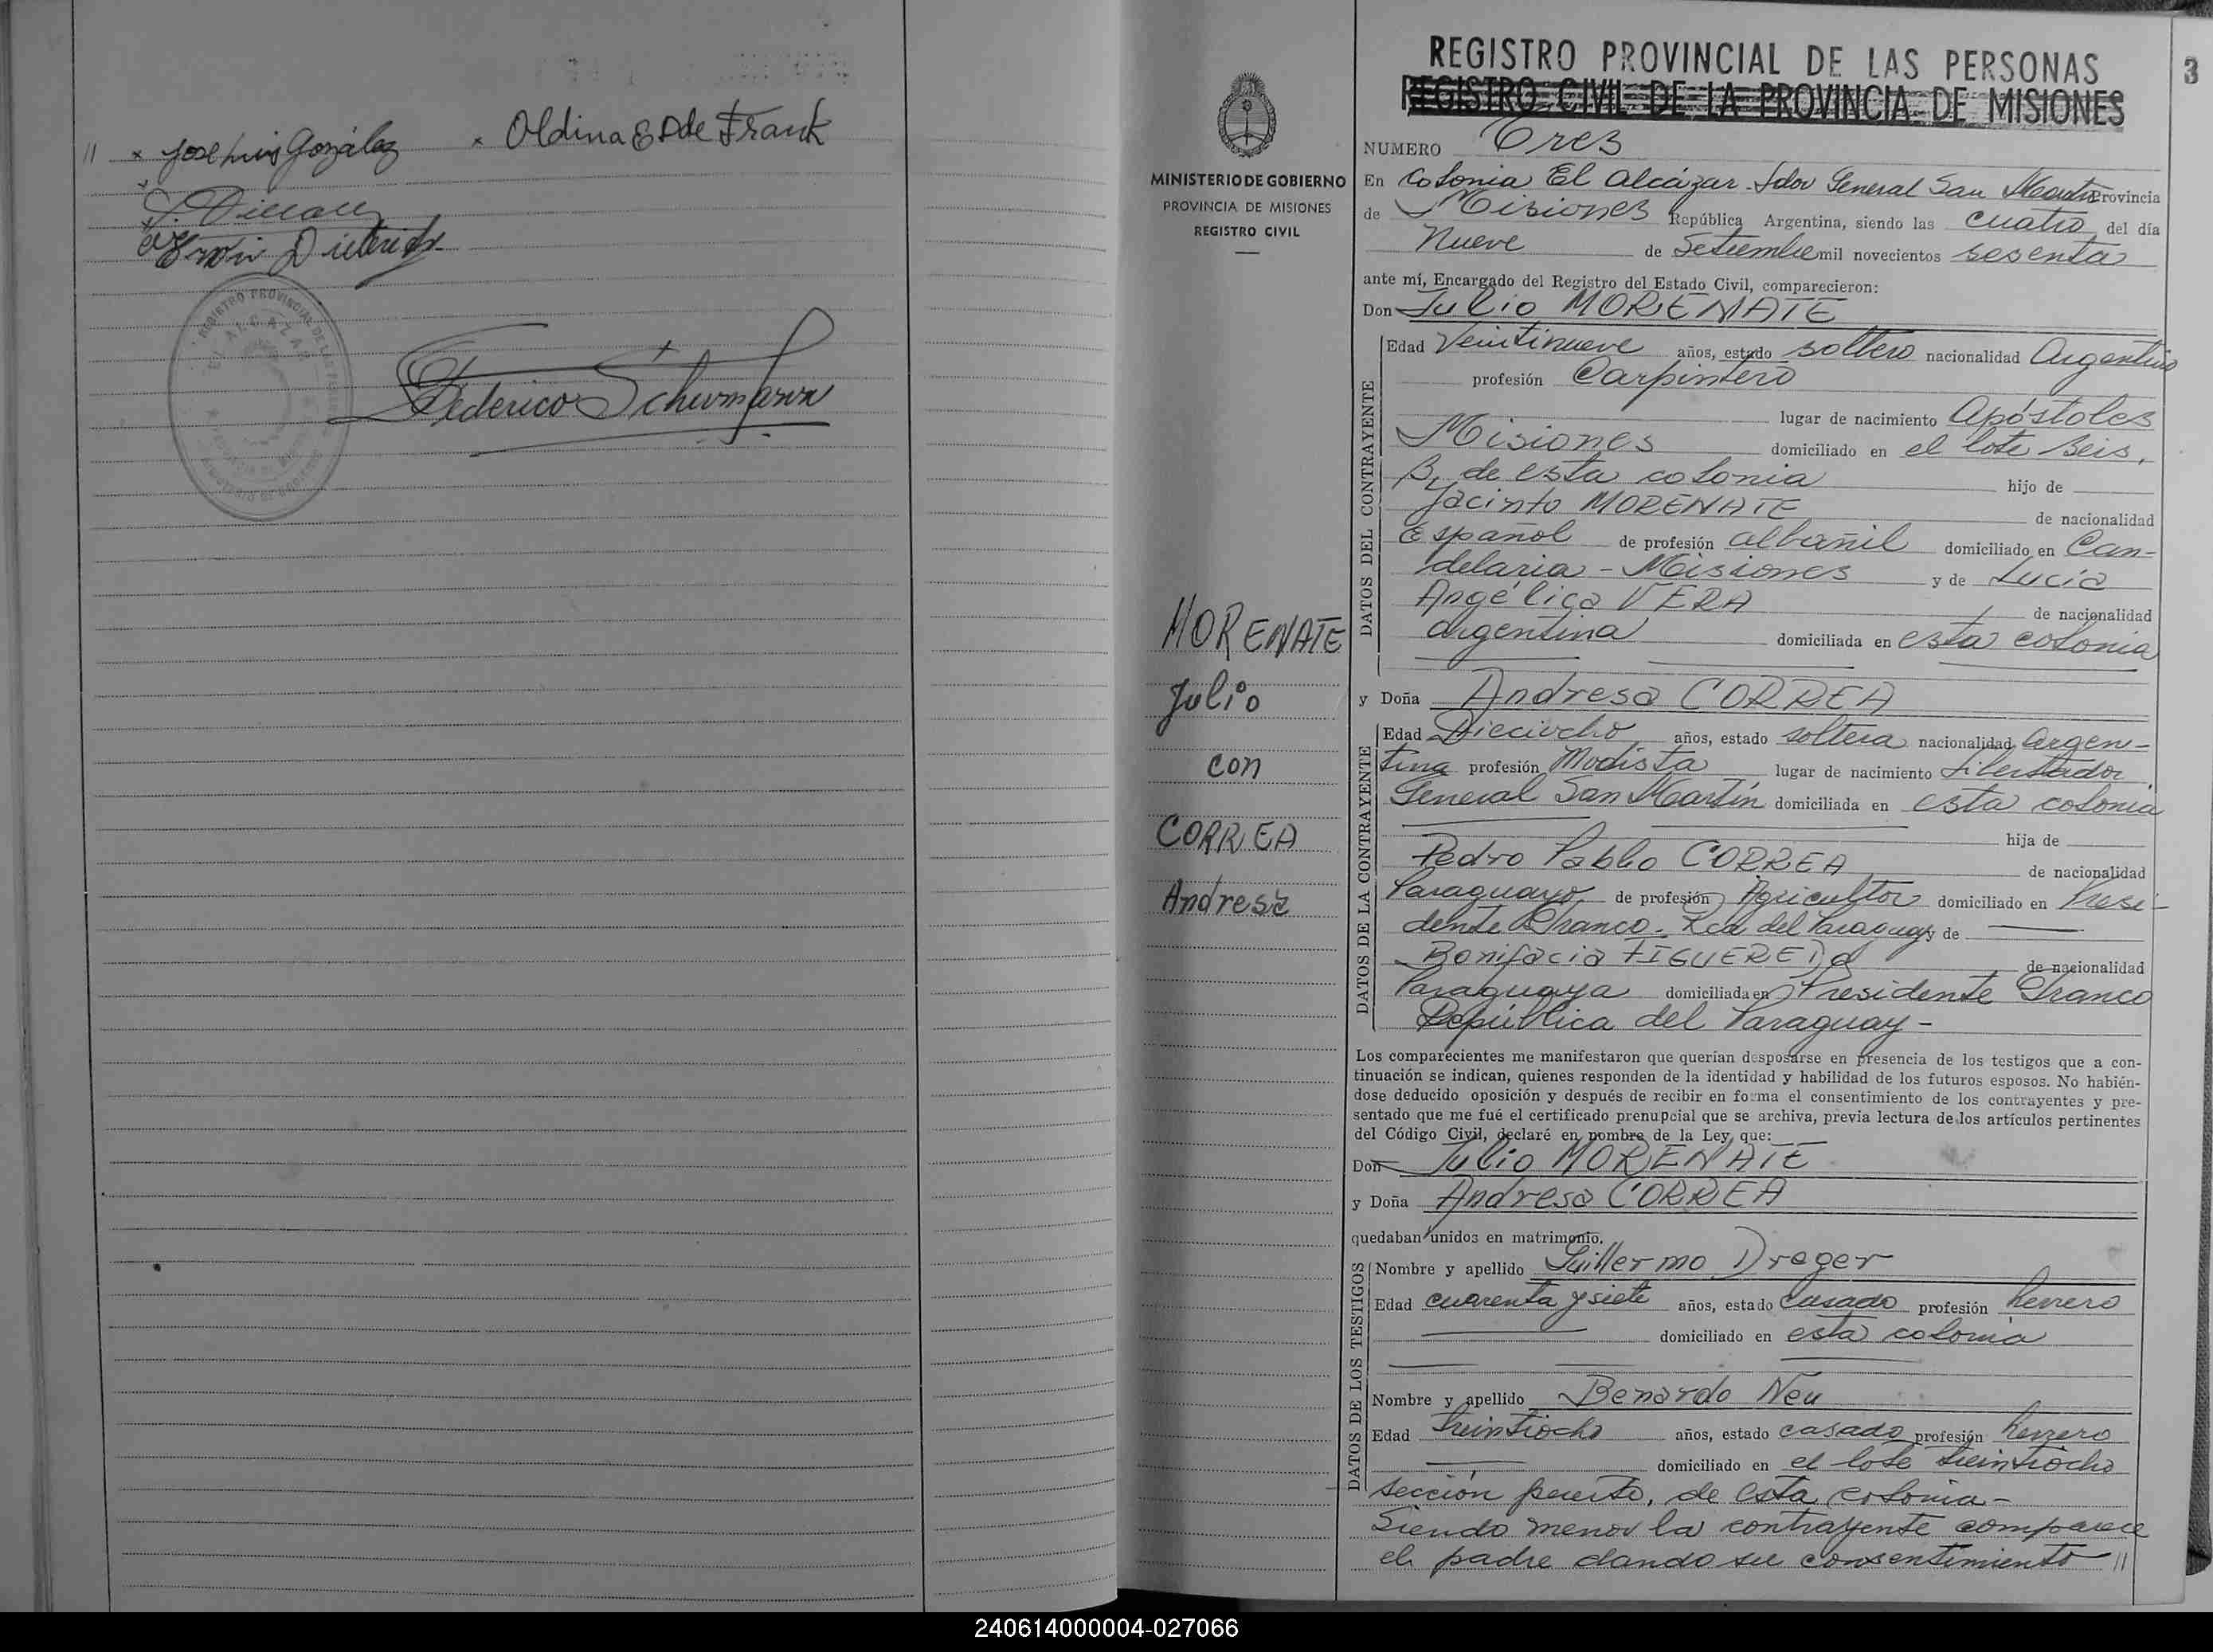 // × José Luis González × Oldina E D de Frank
Erwin Dieterich
REGISTRO PROVINCIAL DE LAS PERSONAS
EL ALCAZAR
Federico Schurmann
MORENATE
Julio
con
CORREA
Andresa
MINISTERIO DE GOBIERNO
PROVINCIA DE MISIONES
REGISTRO CIVIL
3
REGISTRO PROVINCIAL DE LAS PERSONAS
REGISTRO CIVIL DE LA PROVINCIA DE MISIONES
NUMERO Tres
En Colonia El Alcázar - Ldor General San Martín Provincia
de Misiones República Argentina, siendo las cuatro del día
Nueve de Setiembre mil novecientos sesenta
ante mí, Encargado del Registro del Estado Civil, comparecieron:
Don Julio MORENATE
DATOS DEL CONTRAYENTE
Edad Veintinueve años, estado soltero nacionalidad Argentino
profesión Carpintero
lugar de nacimiento Apóstoles
Misiones domiciliado en el lote seis,
B, de esta colonia hijo de
Jacinto MORENATE de nacionalidad
Español de profesión albañil domiciliado en Can-
delaria - Misiones y de Lucía
Angélica VERA de nacionalidad
argentina domiciliada en esta colonia
y Doña Andresa CORREA
DATOS DE LA CONTRAYENTE
Edad Dieciocho años, estado soltera nacionalidad Argen-
tina profesión Modista lugar de nacimiento Libertador
General San Martín domiciliada en esta colonia
hija de
Pedro Pablo CORREA de nacionalidad
Paraguayo de profesión Agricultor domiciliado en Presi-
dente Franco - Rca del Paraguay y de
Bonifacia FIGUEREDO de nacionalidad
Paraguaya domiciliada en Presidente Franco
República del Paraguay -
Los comparecientes me manifestaron que querían desposarse en presencia de los testigos que a con-
tinuación se indican, quienes responden de la identidad y habilidad de los futuros esposos. No habién-
dose deducido oposición y después de recibir en forma el consentimiento de los contrayentes y pre-
sentado que me fué el certificado prenupcial que se archiva, previa lectura de los artículos pertinentes
del Código Civil, declaré en nombre de la Ley, que:
Don Julio MORENATE
y Doña Andresa CORREA
quedaban unidos en matrimonio.
DATOS DE LOS TESTIGOS
Nombre y apellido Guillermo Dreger
Edad cuarenta y siete años, estado casado profesión herrero
domiciliado en esta colonia
Nombre y apellido Benardo Neu
Edad treintiocho años, estado casado profesión herrero
domiciliado en el lote treintiocho
sección puerto, de esta colonia -
Siendo menor la contrayente comparece
el padre dando su consentimiento //
240614000004-027066